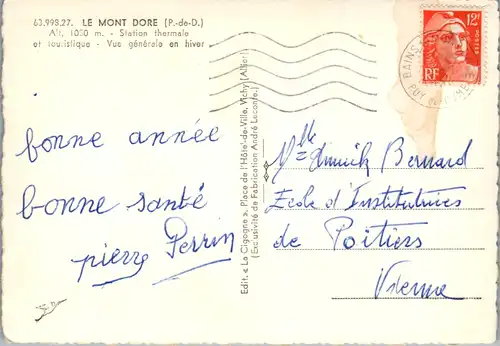 63.993.27. LE MONT DORE (P.-de-D.)
Alt. 1050 m. - Station thermale
et touristique - Vue générale en hiver
bonne année
bonne santé
pierre Perrin
Edit. « La Cigogne », Place de l'Hôtel-de-Ville, Vichy (Allier)
(Exclusivité de Fabrication André Leconte.)
12F
POSTES
RF
BAINS
PUY DE DÔME
Mlle Annick Bernard
Ecole d'Institutrices
de Poitiers
Vienne